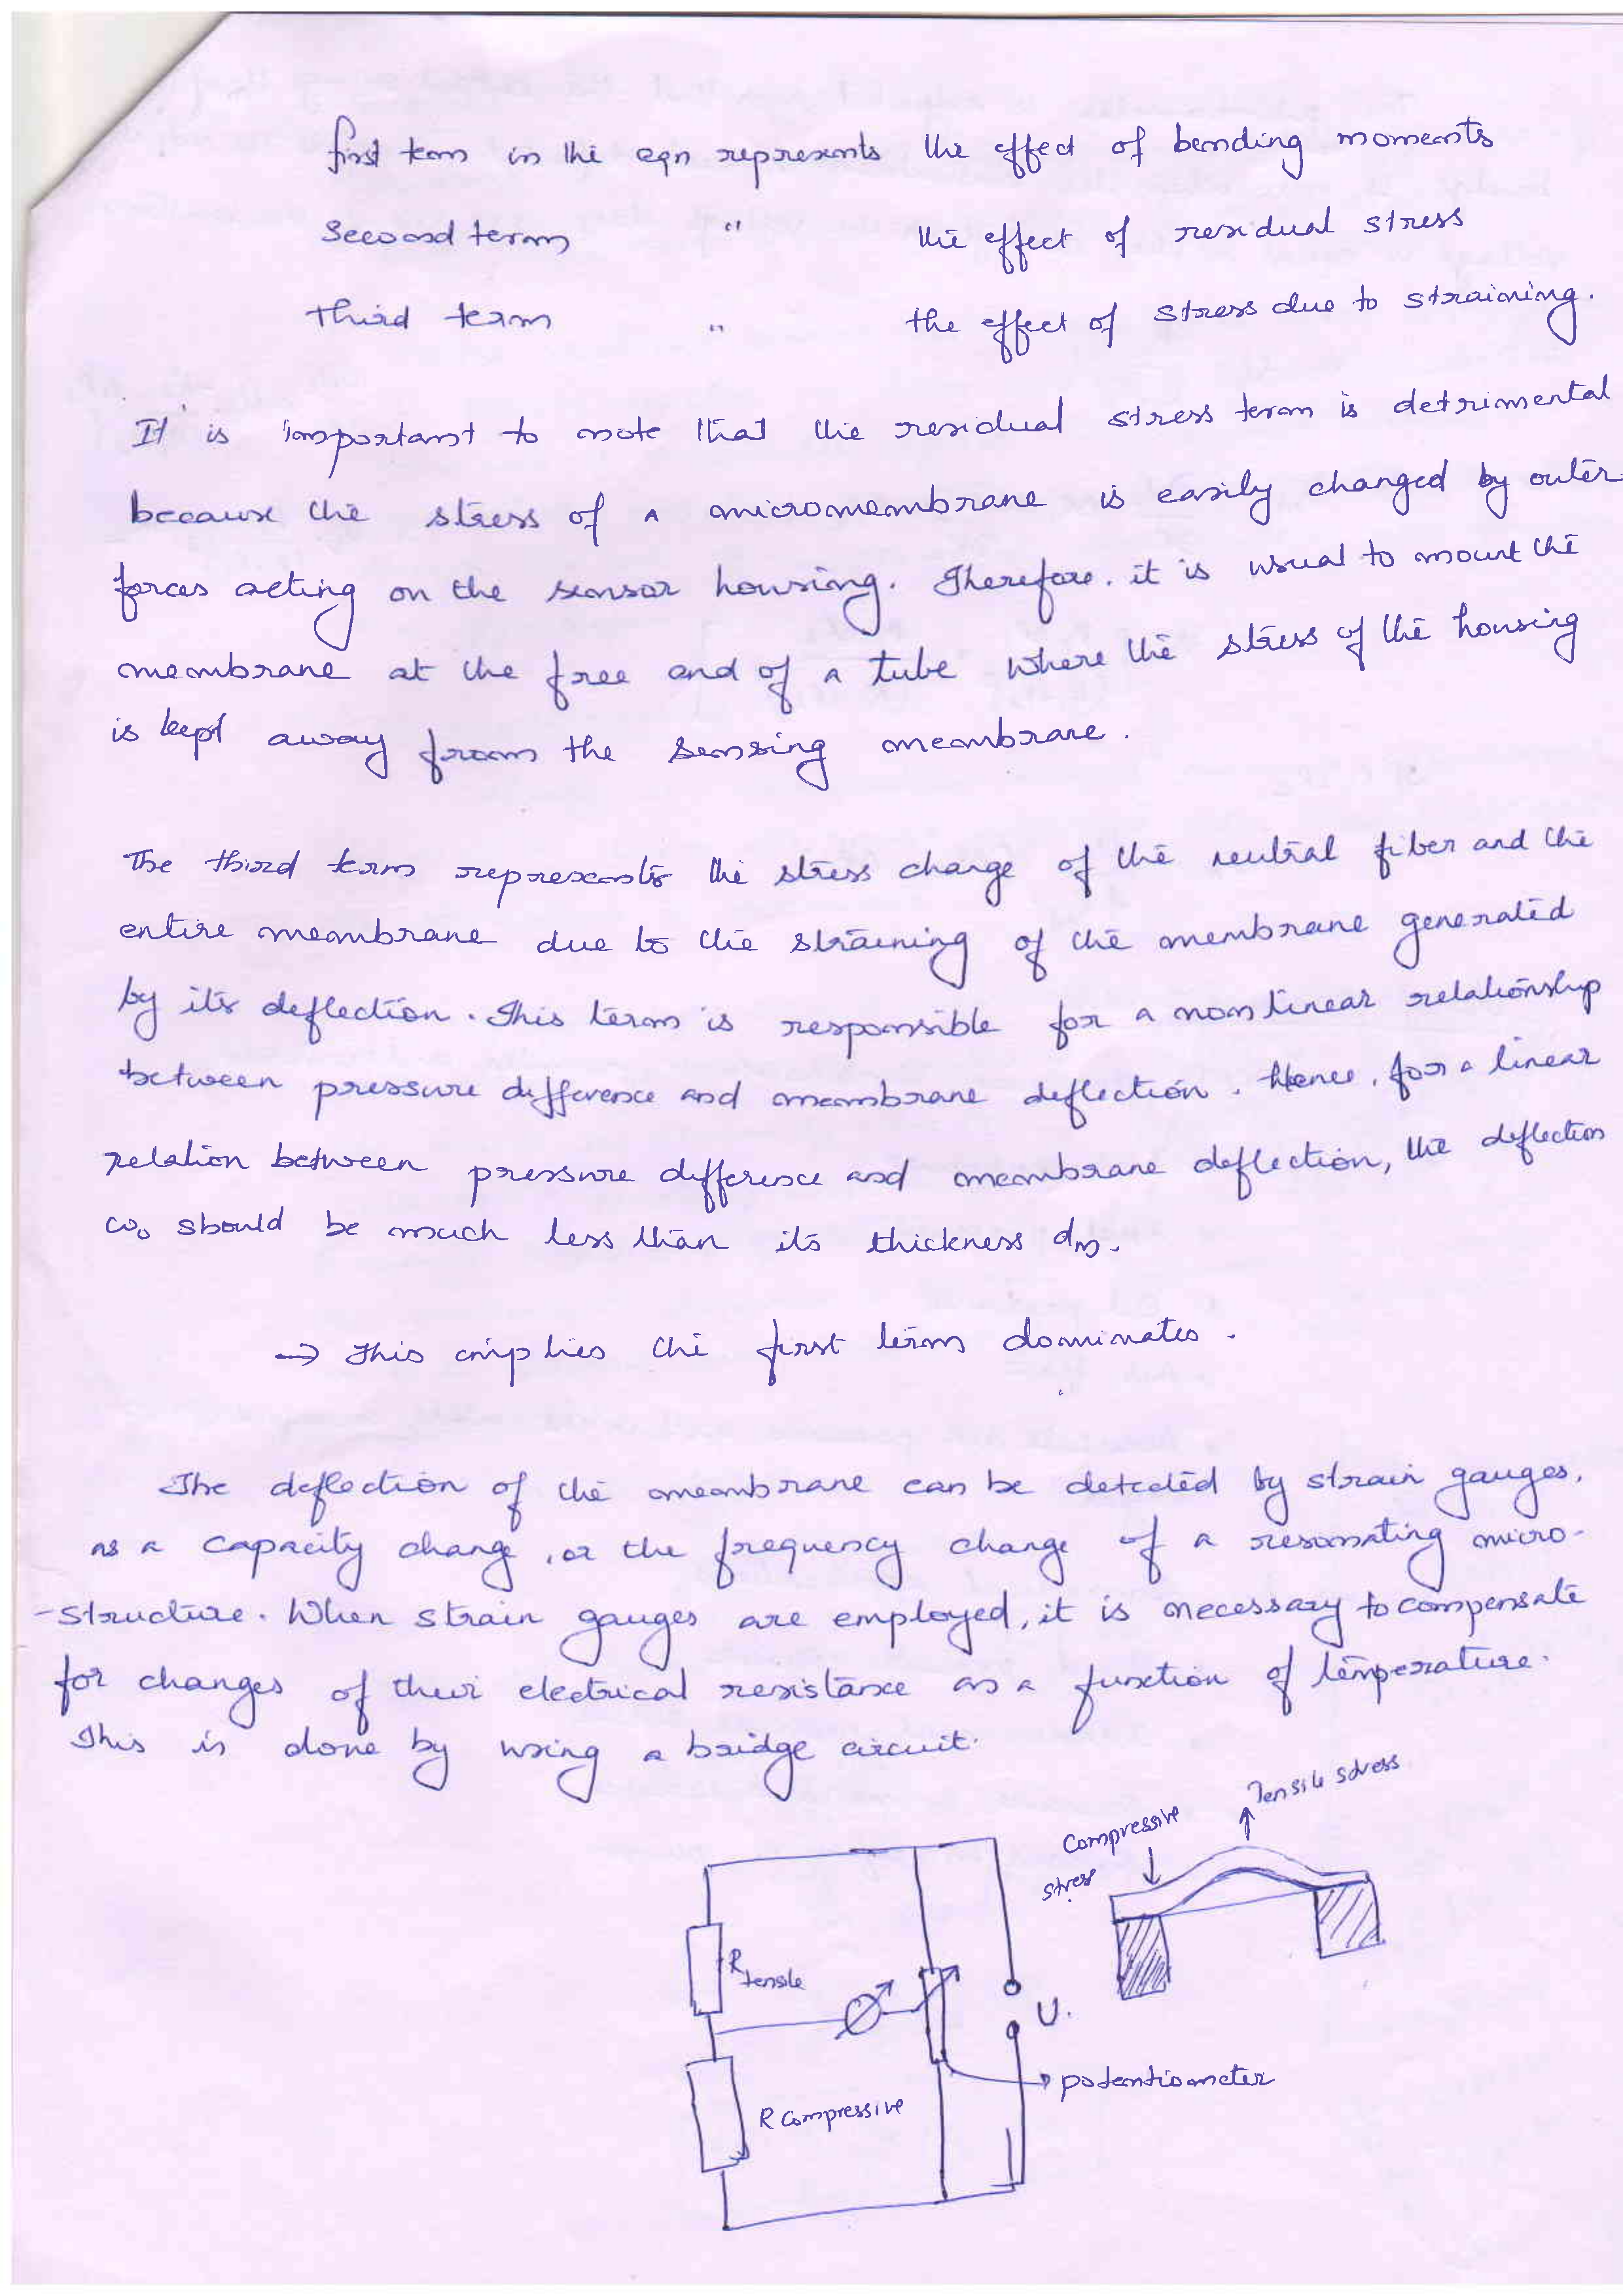 first term in the eqn represents the effect of bending moments
Second term " the effect of residual stress
Third term " the effect of stress due to straining.
It is important to note that the residual stress term is detrimental
because the stress of a micromembrane is easily changed by outer
forces acting on the sensor housing. Therefore, it is usual to mount the
membrane at the free end of a tube where the stress of the housing
is kept away from the sensing membrane.
The third term represents the stress change of the neutral fiber and the
entire membrane due to the straining of the membrane generated
by its deflection. This term is responsible for a non linear relationship
between pressure difference and membrane deflection. Hence, for a linear
relation between pressure difference and membrane deflection, the deflection
w₀ should be much less than its thickness dm.
→ This implies the first term dominates.
The deflection of the membrane can be detected by strain gauges,
as a capacity change, or the frequency change of a resonating micro-
-structure. When strain gauges are employed, it is necessary to compensate
for changes of their electrical resistance as a function of temperature.
This is done by using a bridge circuit.
Tensile stress
Compressive
stress
R tensile
U.
potentiometer
R Compressive